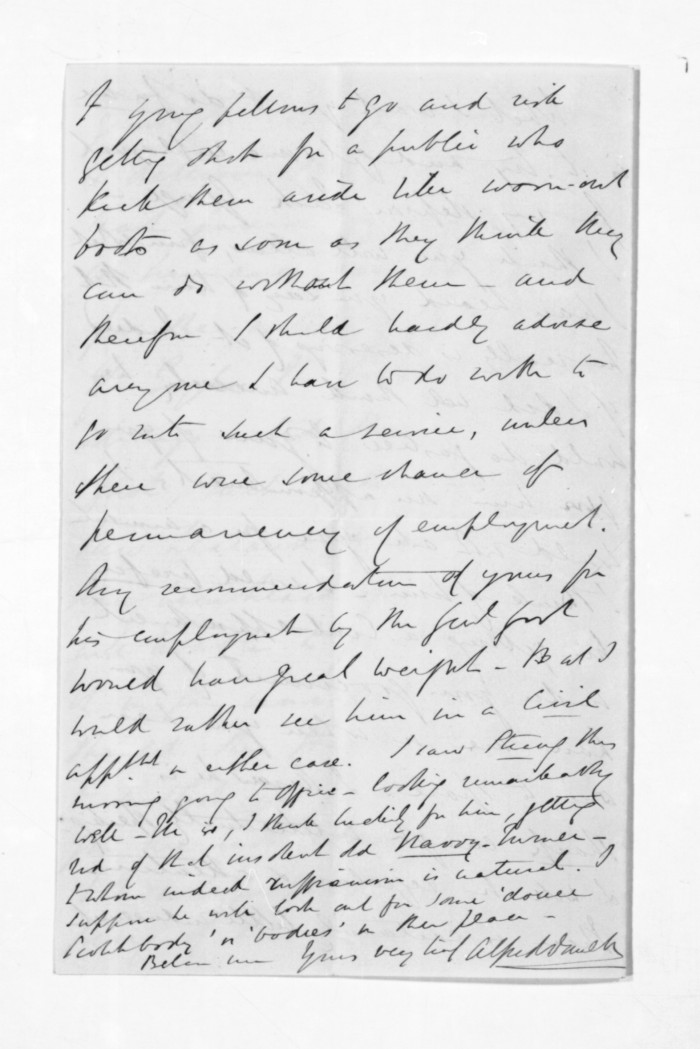 of young fellows to go and risk
getting shot for a public who
kick them aside like worn-out
boots as soon as they think they
can do without them - and
therefore I should hardly advise
anyone I have to do with to
go into such a service, unless
there were some chance of
permanency of employment.
Any recommendation of yours for
his employment by the Genl Govt
would have great weight - But I
would rather see him in a Civil
apptmt in either case. I saw Strong this
morning going to Office - looking remarkably
well - He is, I think lucky for him, getting
rid of that insolent old Navvy-Turner -
to whom indeed ruffianism is natural. I
suppose he will look out for some 'douce
Scotch body' or 'bodies' in their place -
Believe me Yours very truly Alfred Domett